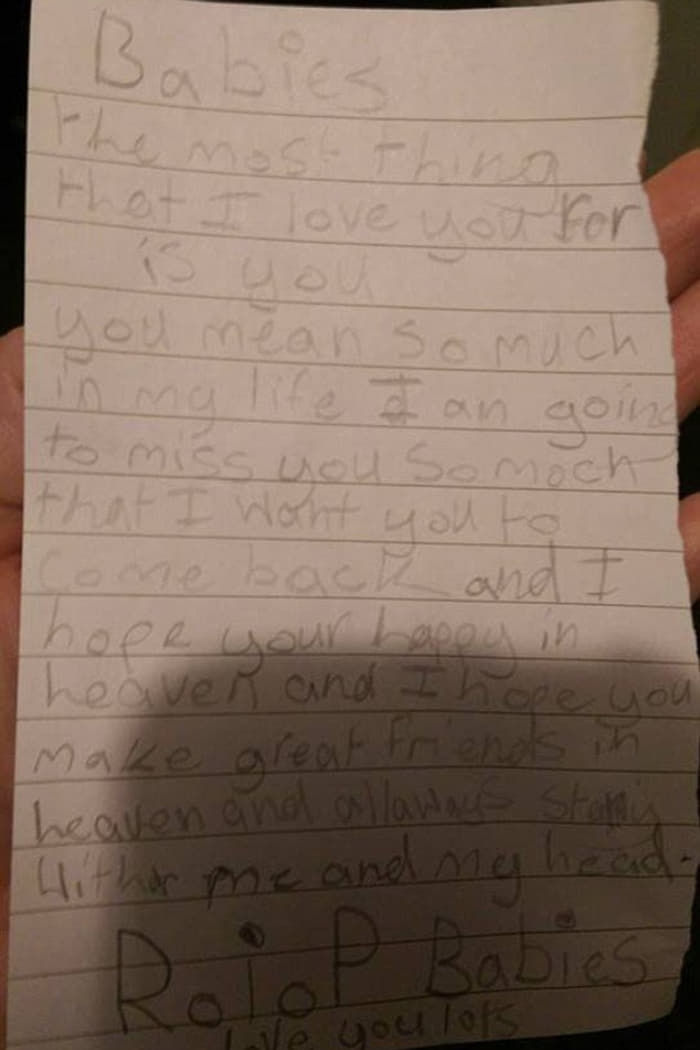 Babies
the most thing
that I love you For
is you
you mean so much
in my life I an going
to miss you so moch
that I want you to
come back and I
hope your happy in
heaven and I hope you
make great friends in
heaven and allaways
me and my head.
R.I.P Babies
love you lots